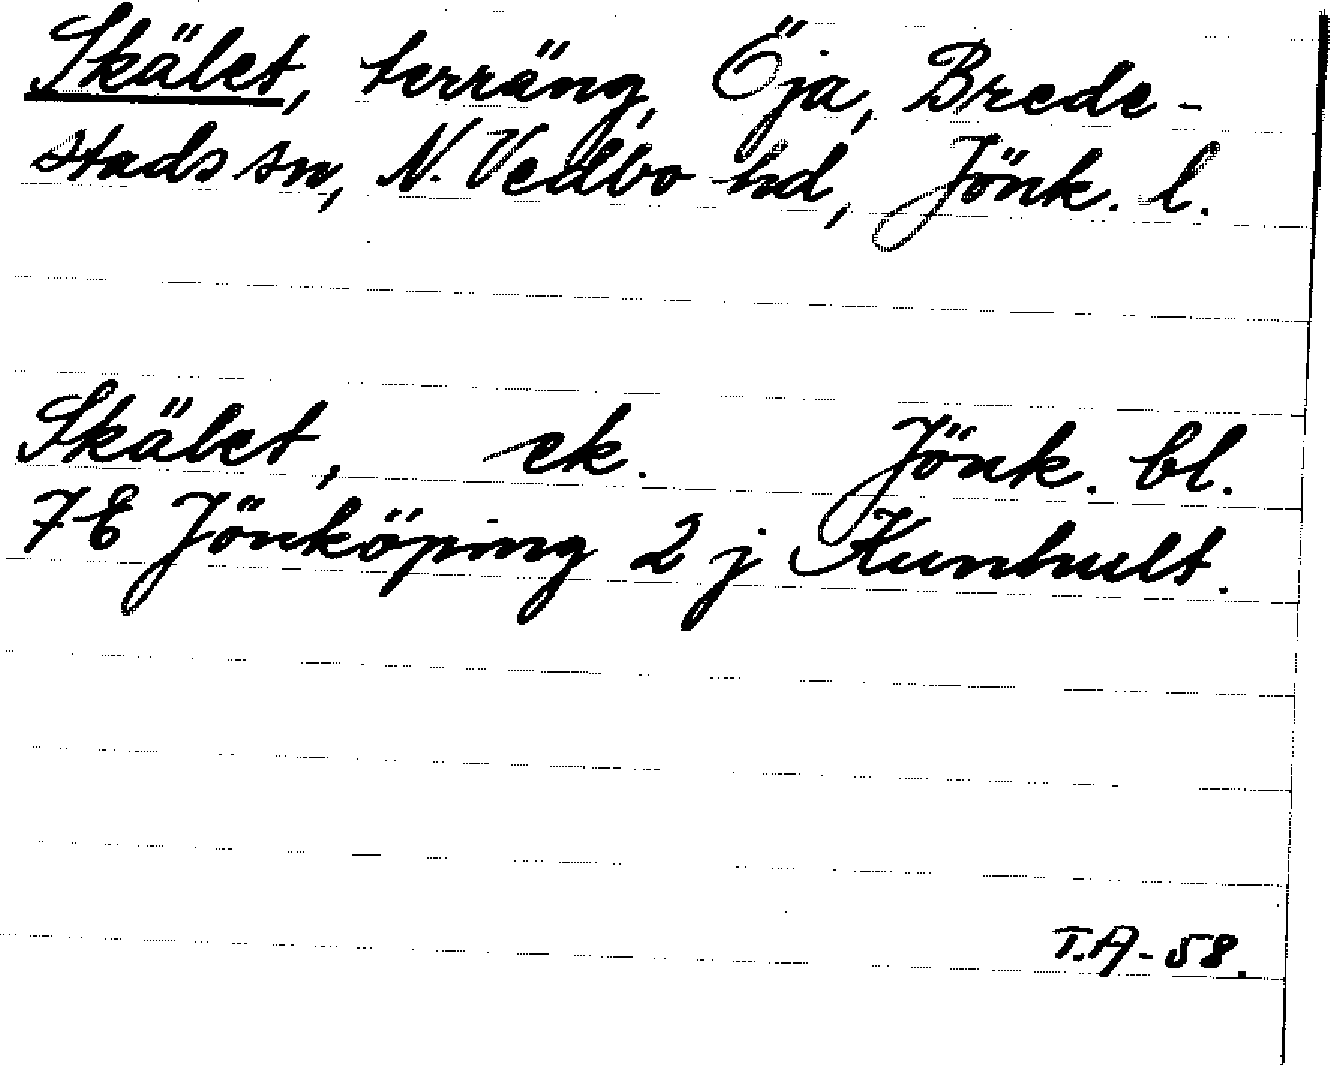 Skälet, terräng, Öja, Brede-
stads sn, N. Vedbo hd, Jönk. l.
Skälet, ek. Jönk. bl.
7E Jönköping 2 j Kunhult.
T.A-58.